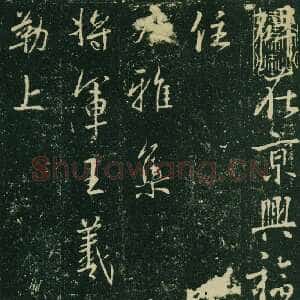 碑在京興福
住
大雅集
將軍王羲
勒上
Shufawang.CN